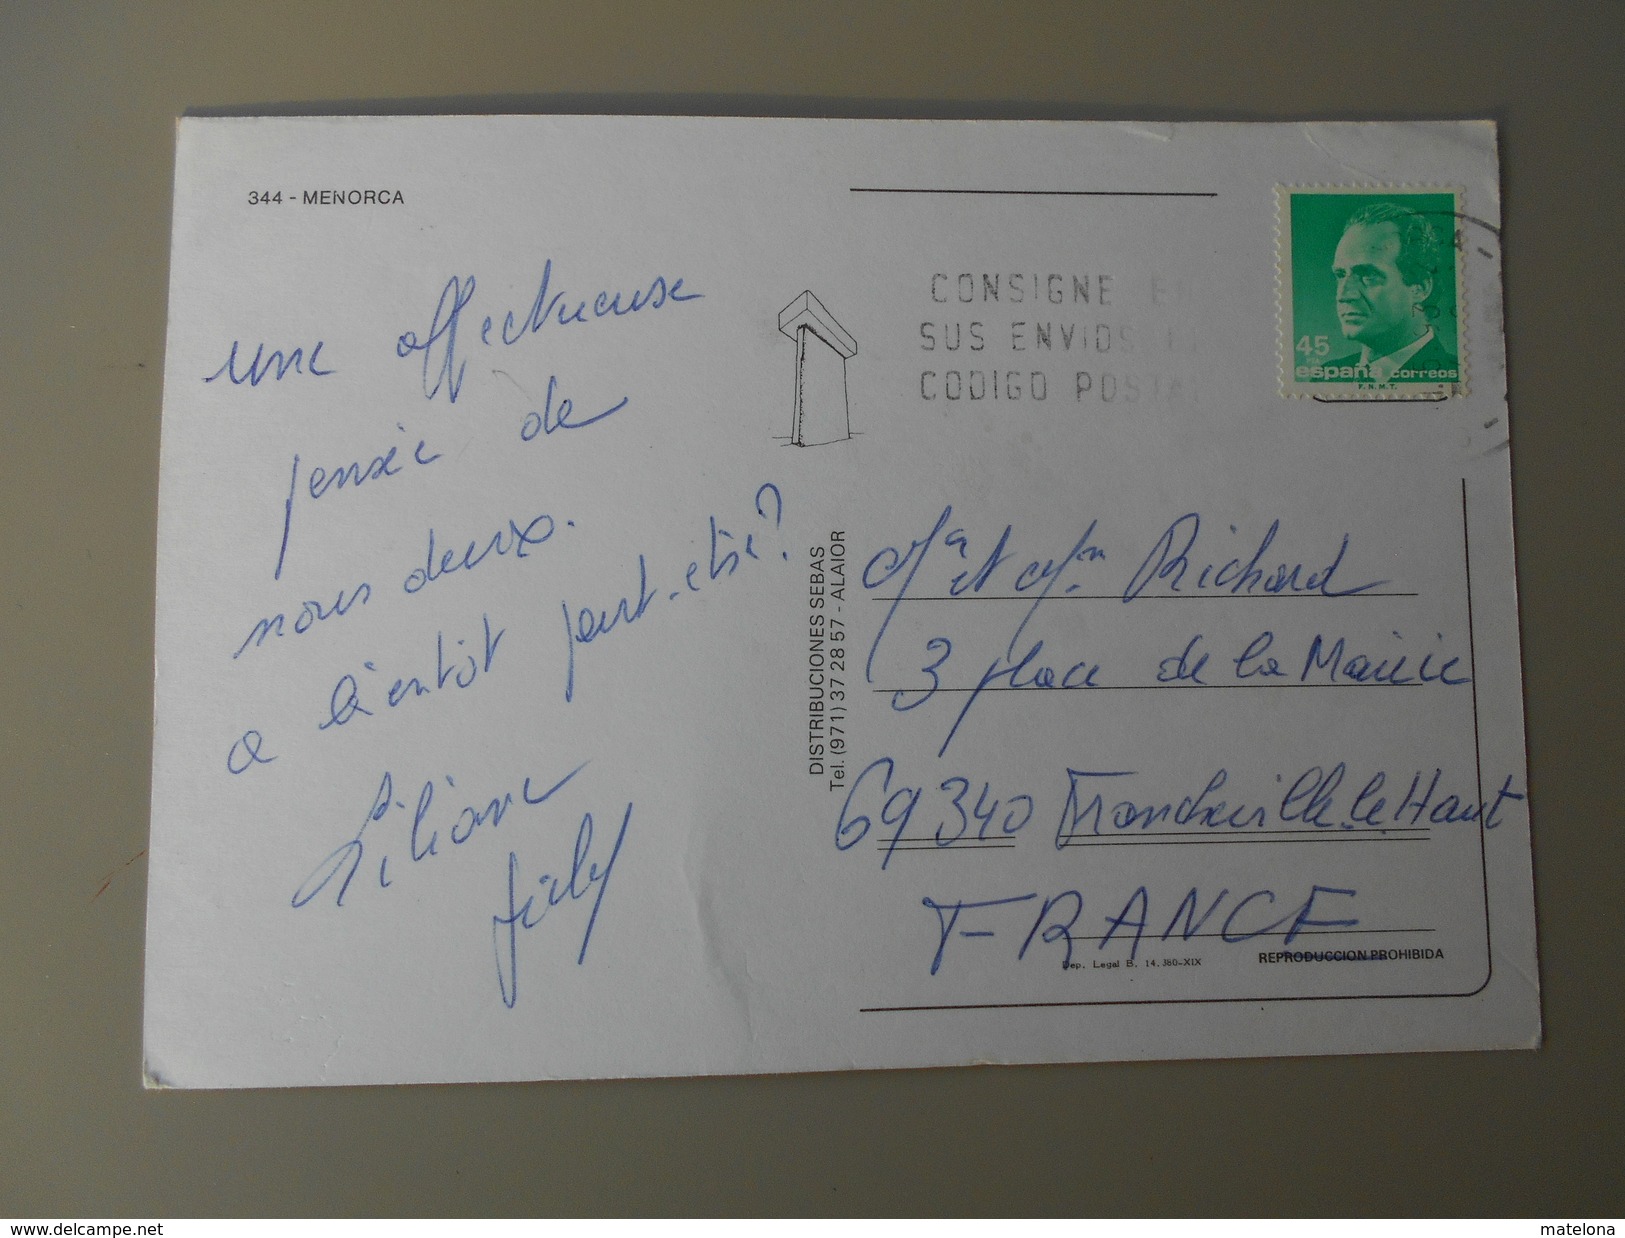 344 - MENORCA
une affectueuse
pensée de
nous deux.
a bientôt peut-être?
Liliane
CONSIGNE EN
SUS ENVIOS EL
CODIGO POSTAL
45
PTA
españa correos
F.N.M.T.
DISTRIBUCIONES SEBAS
Tel. (971) 37 28 57 - ALAIOR
Mr et Mm Richard
3 place de la Mairie
69340 Francheville.le Haut
FRANCE
Dep. Legal B. 14.380-XIX
REPRODUCCION PROHIBIDA
www.delcampe.net
matelona